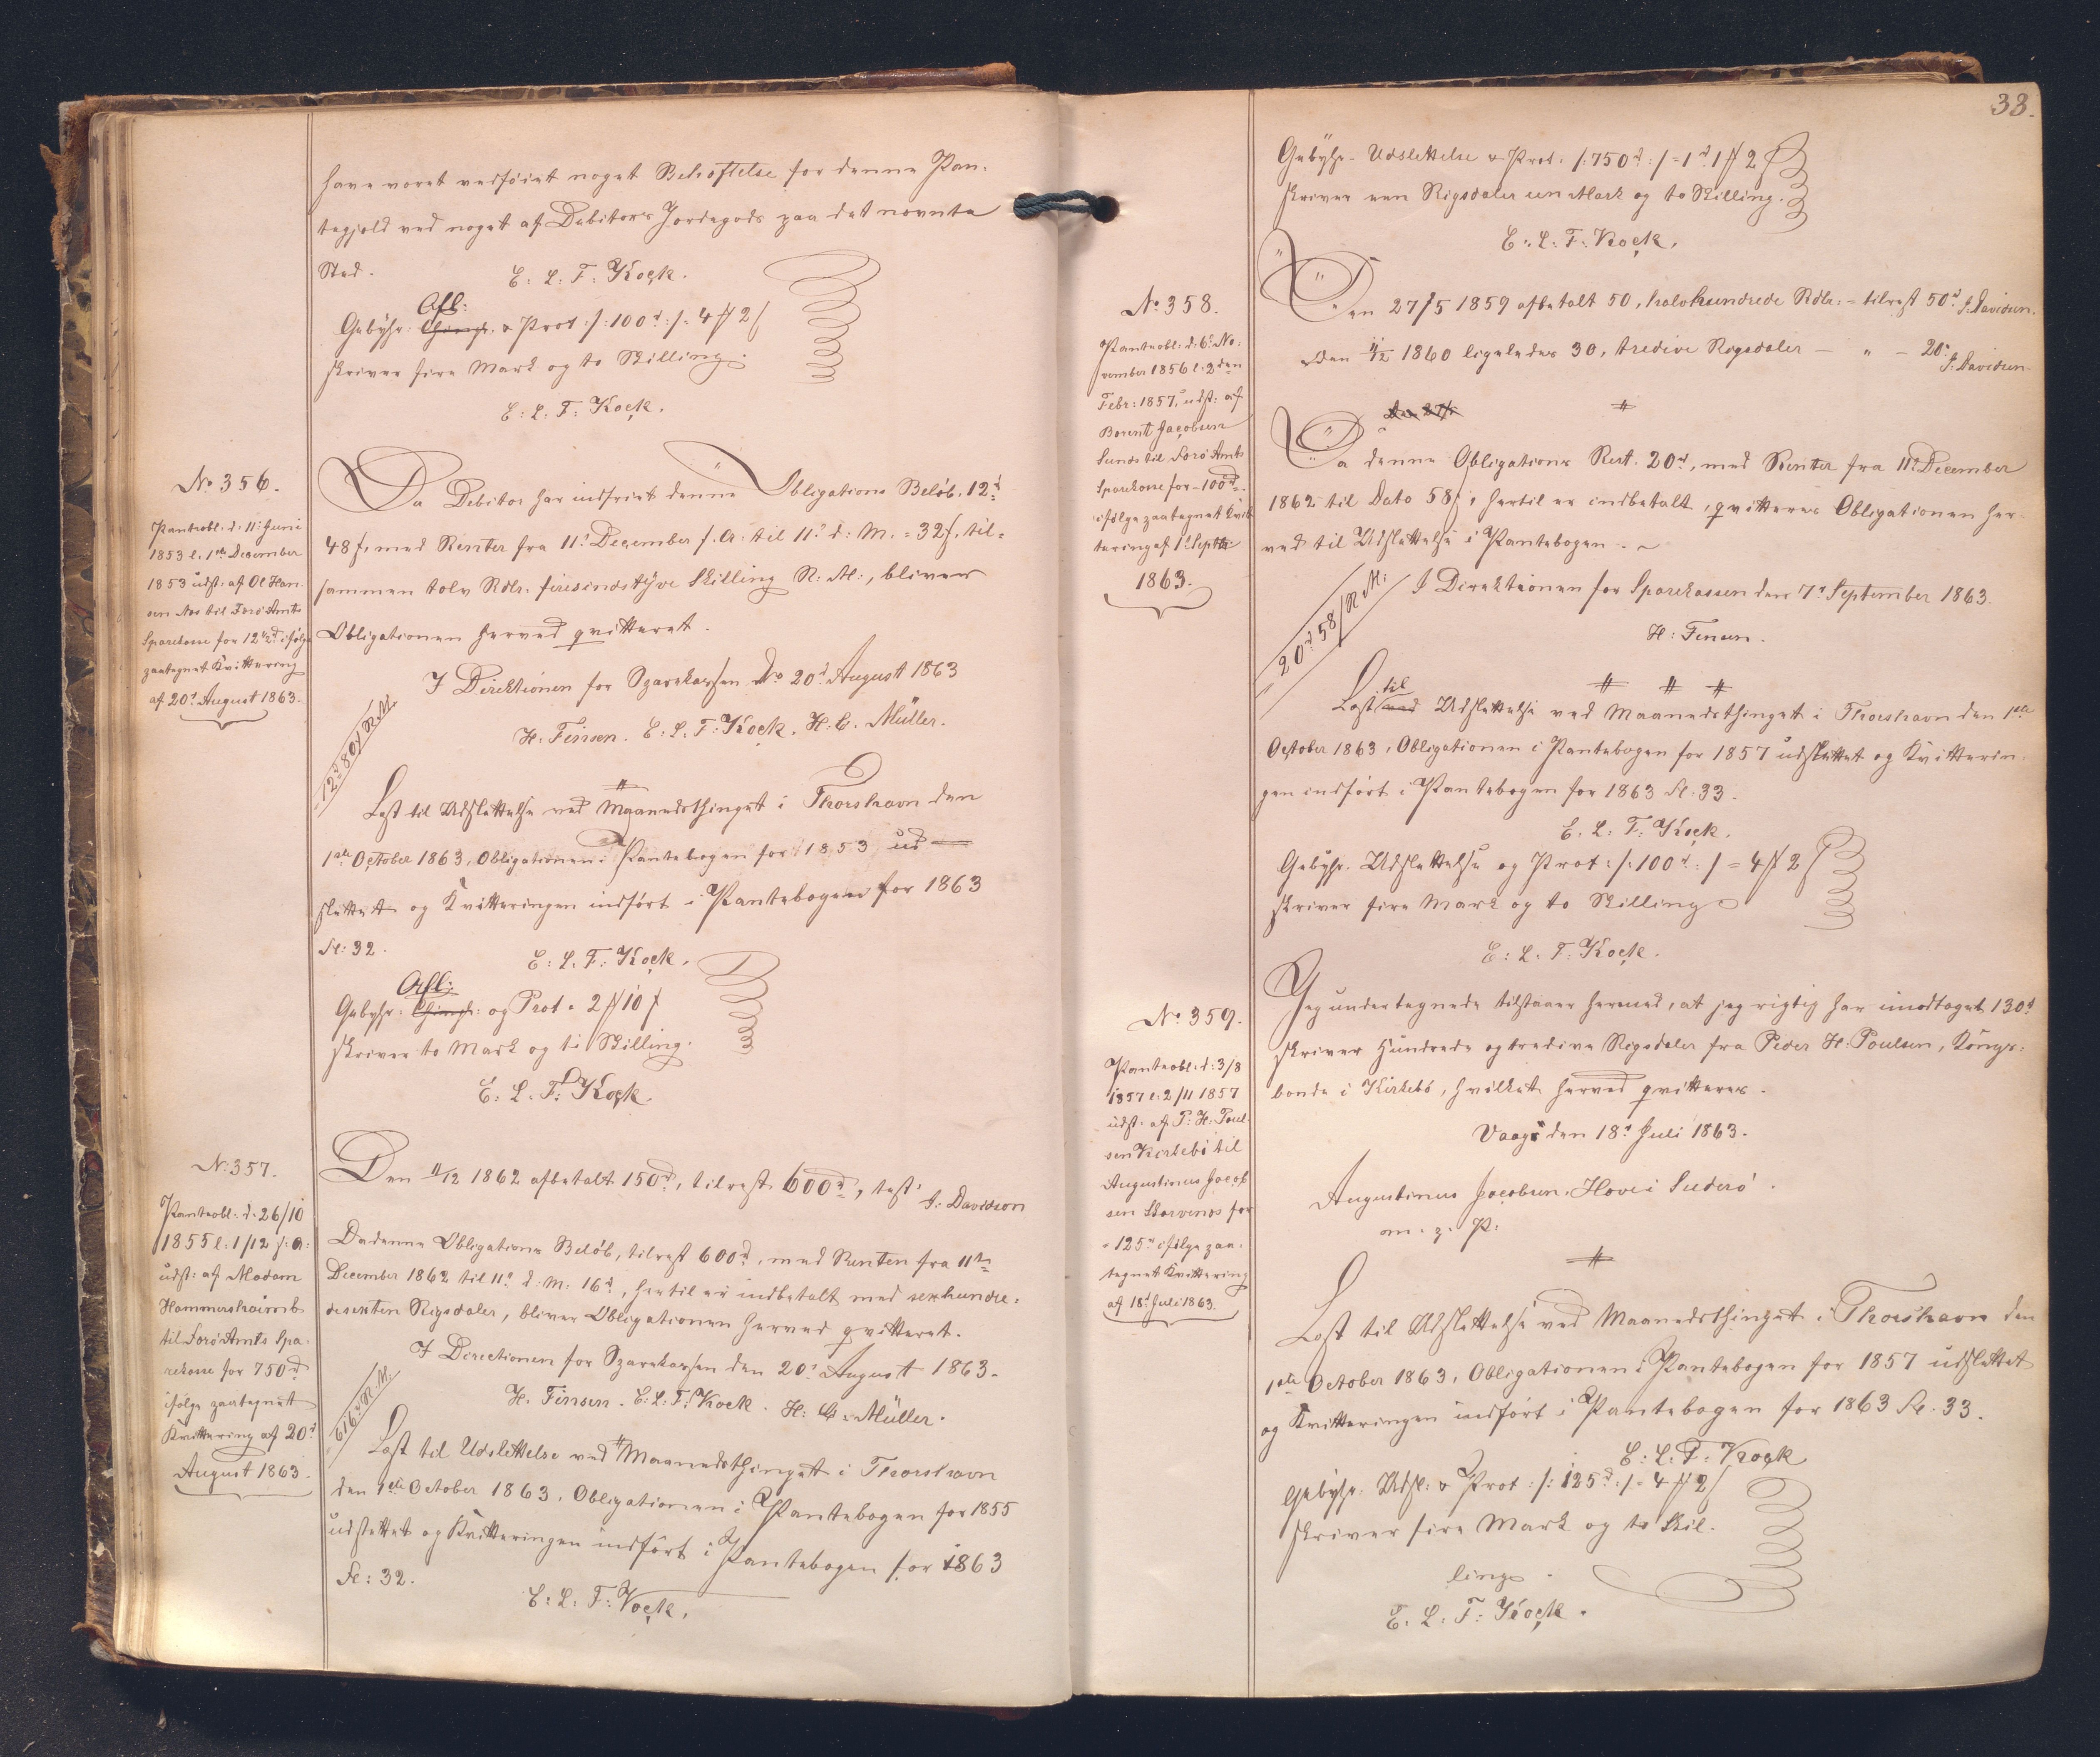 have været vedføiet noget Behæftelse for denne Pan-
tegjeld ved noget af Debitors Jordegods paa det nævnte
Sted.
E: L: F: Kock.
Afl:
Gebyhr: Thingl. & Prot: /: 100 rd: / = 4 # 2 ß
skriver fire Mark og to Skilling.
E: L: F: Kock.
No 356.
Panteobl: d: 11: Juni
1853 l. 1ste December
1853 udst: af Ol Han-
sen Næs til Færø Amts
Sparekasse for 12½ rd ifølge
paategnet Kvittering
af 20d August 1863.
Da Debitor har indfriet denne Obligations Beløb, 12 rd
48 ß, med Renter fra 11d December f. A: til 11d d: M. = 32 ß, til-
sammen tolv Rdlr. firesindstyve Skilling R: M:, bliver
Obligationen herved qvitteret.
I Direktionen for Sparekassen d. 20d August 1863
H. Finsen. E: L: F: Kock. H. C. Müller.
= 12 rd 80 ß R.M.
Læst til Udslettelse ved Maanedsthinget i Thorshavn den
1ste October 1863, Obligationen i Pantebogen for 1853 ud-
slettet og Kvitteringen indført i Pantebogen for 1863
Fol: 32.
E: L: F: Kock.
Afl:
Gebyhr: Thingl: og Prot = 2 # 10 ß
skriver to Mark og ti Skilling.
E: L: F: Kock.
No 357.
Pantobl: d: 26/10
1855 l: 1/12 s: A:
udst: af Madam
Hammershaimb
til Færø Amts Spa-
rekasse for 750 rd
ifølge paategnet
Kvittering af 20d
August 1863.
Den 11/12 1862 afbetalt 150 rd, tilrest 600 rd, test:
J: Davidson
Da denne Obligations Beløb, tilrest 600 rd, med Renten fra 11te
December 1862 til 11d d: M: 16 rd, hertil er indbetalt med sexhundre-
desexten Rigsdaler, bliver Obligationen herved qvitteret.
I Directionen for Sparekassen den 20d August 1863.
H. Finsen. E: L: F: Kock. H: C: Müller.
= 616 rd R.M.
Læst til Udslettelse ved Maanedsthinget i Thorshavn
den 1ste October 1863, Obligationen i Pantebogen for 1855
udslettet og Kvitteringen indført i Pantebogen for 1863
Fol: 32.
E: L: F: Kock.
38.
Gebyhr- Udslettelse & Prot: /: 750 rd: / = 1 rd 1 # 2 ß
skriver een Rigsdaler een Mark og to Skilling.
E: L: F: Kock.
No 358.
Panteobl: d: 6d No-
vember 1856 l: 2den
Febr: 1857, udst: af
Berent Jacobsen
Sunds til Færø Amts
Sparekasse for 100 rd
ifølge paategnet Kvit-
tering af 1d Septbr
1863.
Den 27/5 1859 afbetalt 50, halvhundrede Rdlr: - tilrest 50 rd J: Davidsen.
Den 11/12 1860 ligeledes 30, tredive Rigsdaler — " — 20 rd
J: Davidsen
Den 27/5
Da denne Obligations Rest. 20 rd, med Renter fra 11d December
1862 til Dato 58 ß, hertil er indbetalt, qvitteres Obligationen her-
ved til Udslettelse i Pantebogen. ~
= 20 rd 58 ß R.M:
I Direktionen for Sparekassen den 7d September 1863.
H: Finsen.
til
Læst ved Udslettelse ved Maanedsthinget i Thorshavn den 1ste
October 1863, Obligationen i Pantebogen for 1857 udslettet og Kvitterin-
gen indført i Pantebogen for 1863 Fol: 33.
E: L: F: Kock.
Gebyhr. Udslettelse og Prot: /: 100 rd: / = 4 # 2 ß
skriver fire Mark og to Skilling
E: L: F: Kock.
No 359.
Panteobl: d: 3/8
1857 l: 2/11 1857
udst: af P: H: Poul-
sen Kirkebø til
Augustinus Jacob-
sen for
= 125 rd ifølge paa-
tegnet Kvittering
af 18d Juli 1863.
Jeg undertegnede tilstaaer hermed, at jeg rigtig har imodtaget 130 rd
skriver Hundrede og tredive Rigsdaler fra Peder H: Poulsen, Kongs-
bonde i Kirkebø, hvilket herved qvitteres.
Vaag den 18d Juli 1863.
Augustinus Jacobsen. Hove i Suderø.
m. p: P:
Læst til Udslettelse ved Maanedsthinget i Thorshavn den
1ste October 1863, Obligationen i Pantebogen for 1857 udslettet
og Kvitteringen indført i Pantebogen for 1863 Fol. 33.
E: L: F: Kock
Gebyhr: Udsl: & Prot: /: 125 rd: / = 4 # 2 ß
skriver fire Mark og to Skil-
ling.
E. L. F: Kock.